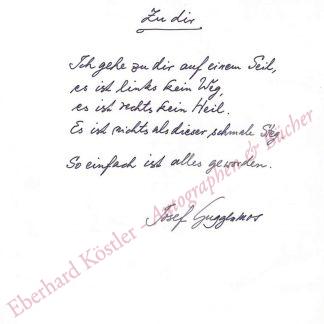 Zu dir
Ich gehe zu dir auf einem Seil,
es ist links kein Weg,
es ist rechts kein Heil.
Es ist nichts als dieser schmale Steg.
So einfach ist alles geworden.
Josef Guggenmos
Eberhard Köstler - Autographen & Bücher